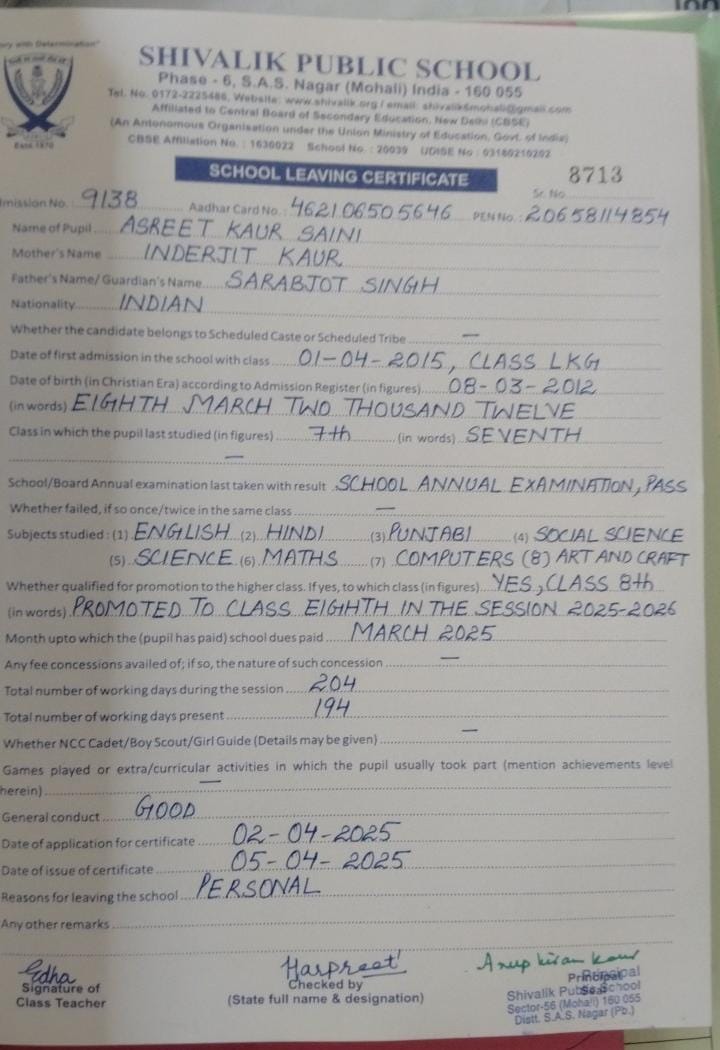 SHIVALIK PUBLIC SCHOOL
Phase - 6, S.A.S. Nagar (Mohali) India - 160 055
Tel. No. 0172-2225486, Website: www.shivalik.org / email: shivalik6mohali@gmail.com
Affiliated to Central Board of Secondary Education, New Delhi (CBSE)
(An Antonomous Organisation under the Union Ministry of Education, Govt. of India)
CBSE Affiliation No. : 1630022 School No. : 20039 UDISE No : 03180210202
Estd.1970
SCHOOL LEAVING CERTIFICATE
Sr. No. 8713
mission No. : 9138 Aadhar Card No. : 462106505646 PEN No. : 20658114854
Name of Pupil ASREET KAUR SAINI
Mother's Name INDERJIT KAUR
Father's Name/ Guardian's Name SARABJOT SINGH
Nationality INDIAN
Whether the candidate belongs to Scheduled Caste or Scheduled Tribe —
Date of first admission in the school with class 01-04-2015, CLASS LKG
Date of birth (in Christian Era) according to Admission Register (in figures) 08-03-2012
(in words) EIGHTH MARCH TWO THOUSAND TWELVE
Class in which the pupil last studied (in figures) 7th (in words) SEVENTH
—
School/Board Annual examination last taken with result SCHOOL ANNUAL EXAMINATION, PASS
Whether failed, if so once/twice in the same class —
Subjects studied : (1) ENGLISH (2) HINDI (3) PUNJABI (4) SOCIAL SCIENCE
(5) SCIENCE (6) MATHS (7) COMPUTERS (8) ART AND CRAFT
Whether qualified for promotion to the higher class. If yes, to which class (in figures) YES, CLASS 8th
(in words) PROMOTED TO CLASS EIGHTH IN THE SESSION 2025-2026
Month upto which the (pupil has paid) school dues paid MARCH 2025
Any fee concessions availed of; if so, the nature of such concession —
Total number of working days during the session 204
Total number of working days present 194
Whether NCC Cadet/Boy Scout/Girl Guide (Details may be given) —
Games played or extra/curricular activities in which the pupil usually took part (mention achievements level
herein) —
General conduct GOOD
Date of application for certificate 02-04-2025
Date of issue of certificate 05-04-2025
Reasons for leaving the school PERSONAL
Any other remarks
Edha Harpreet Anup Kiran Kaur
Signature of
Class Teacher
Checked by
(State full name & designation)
Principal
Seal
Principal
Shivalik Public School
Sector-56 (Mohali) 160 055
Distt. S.A.S. Nagar (Pb.)